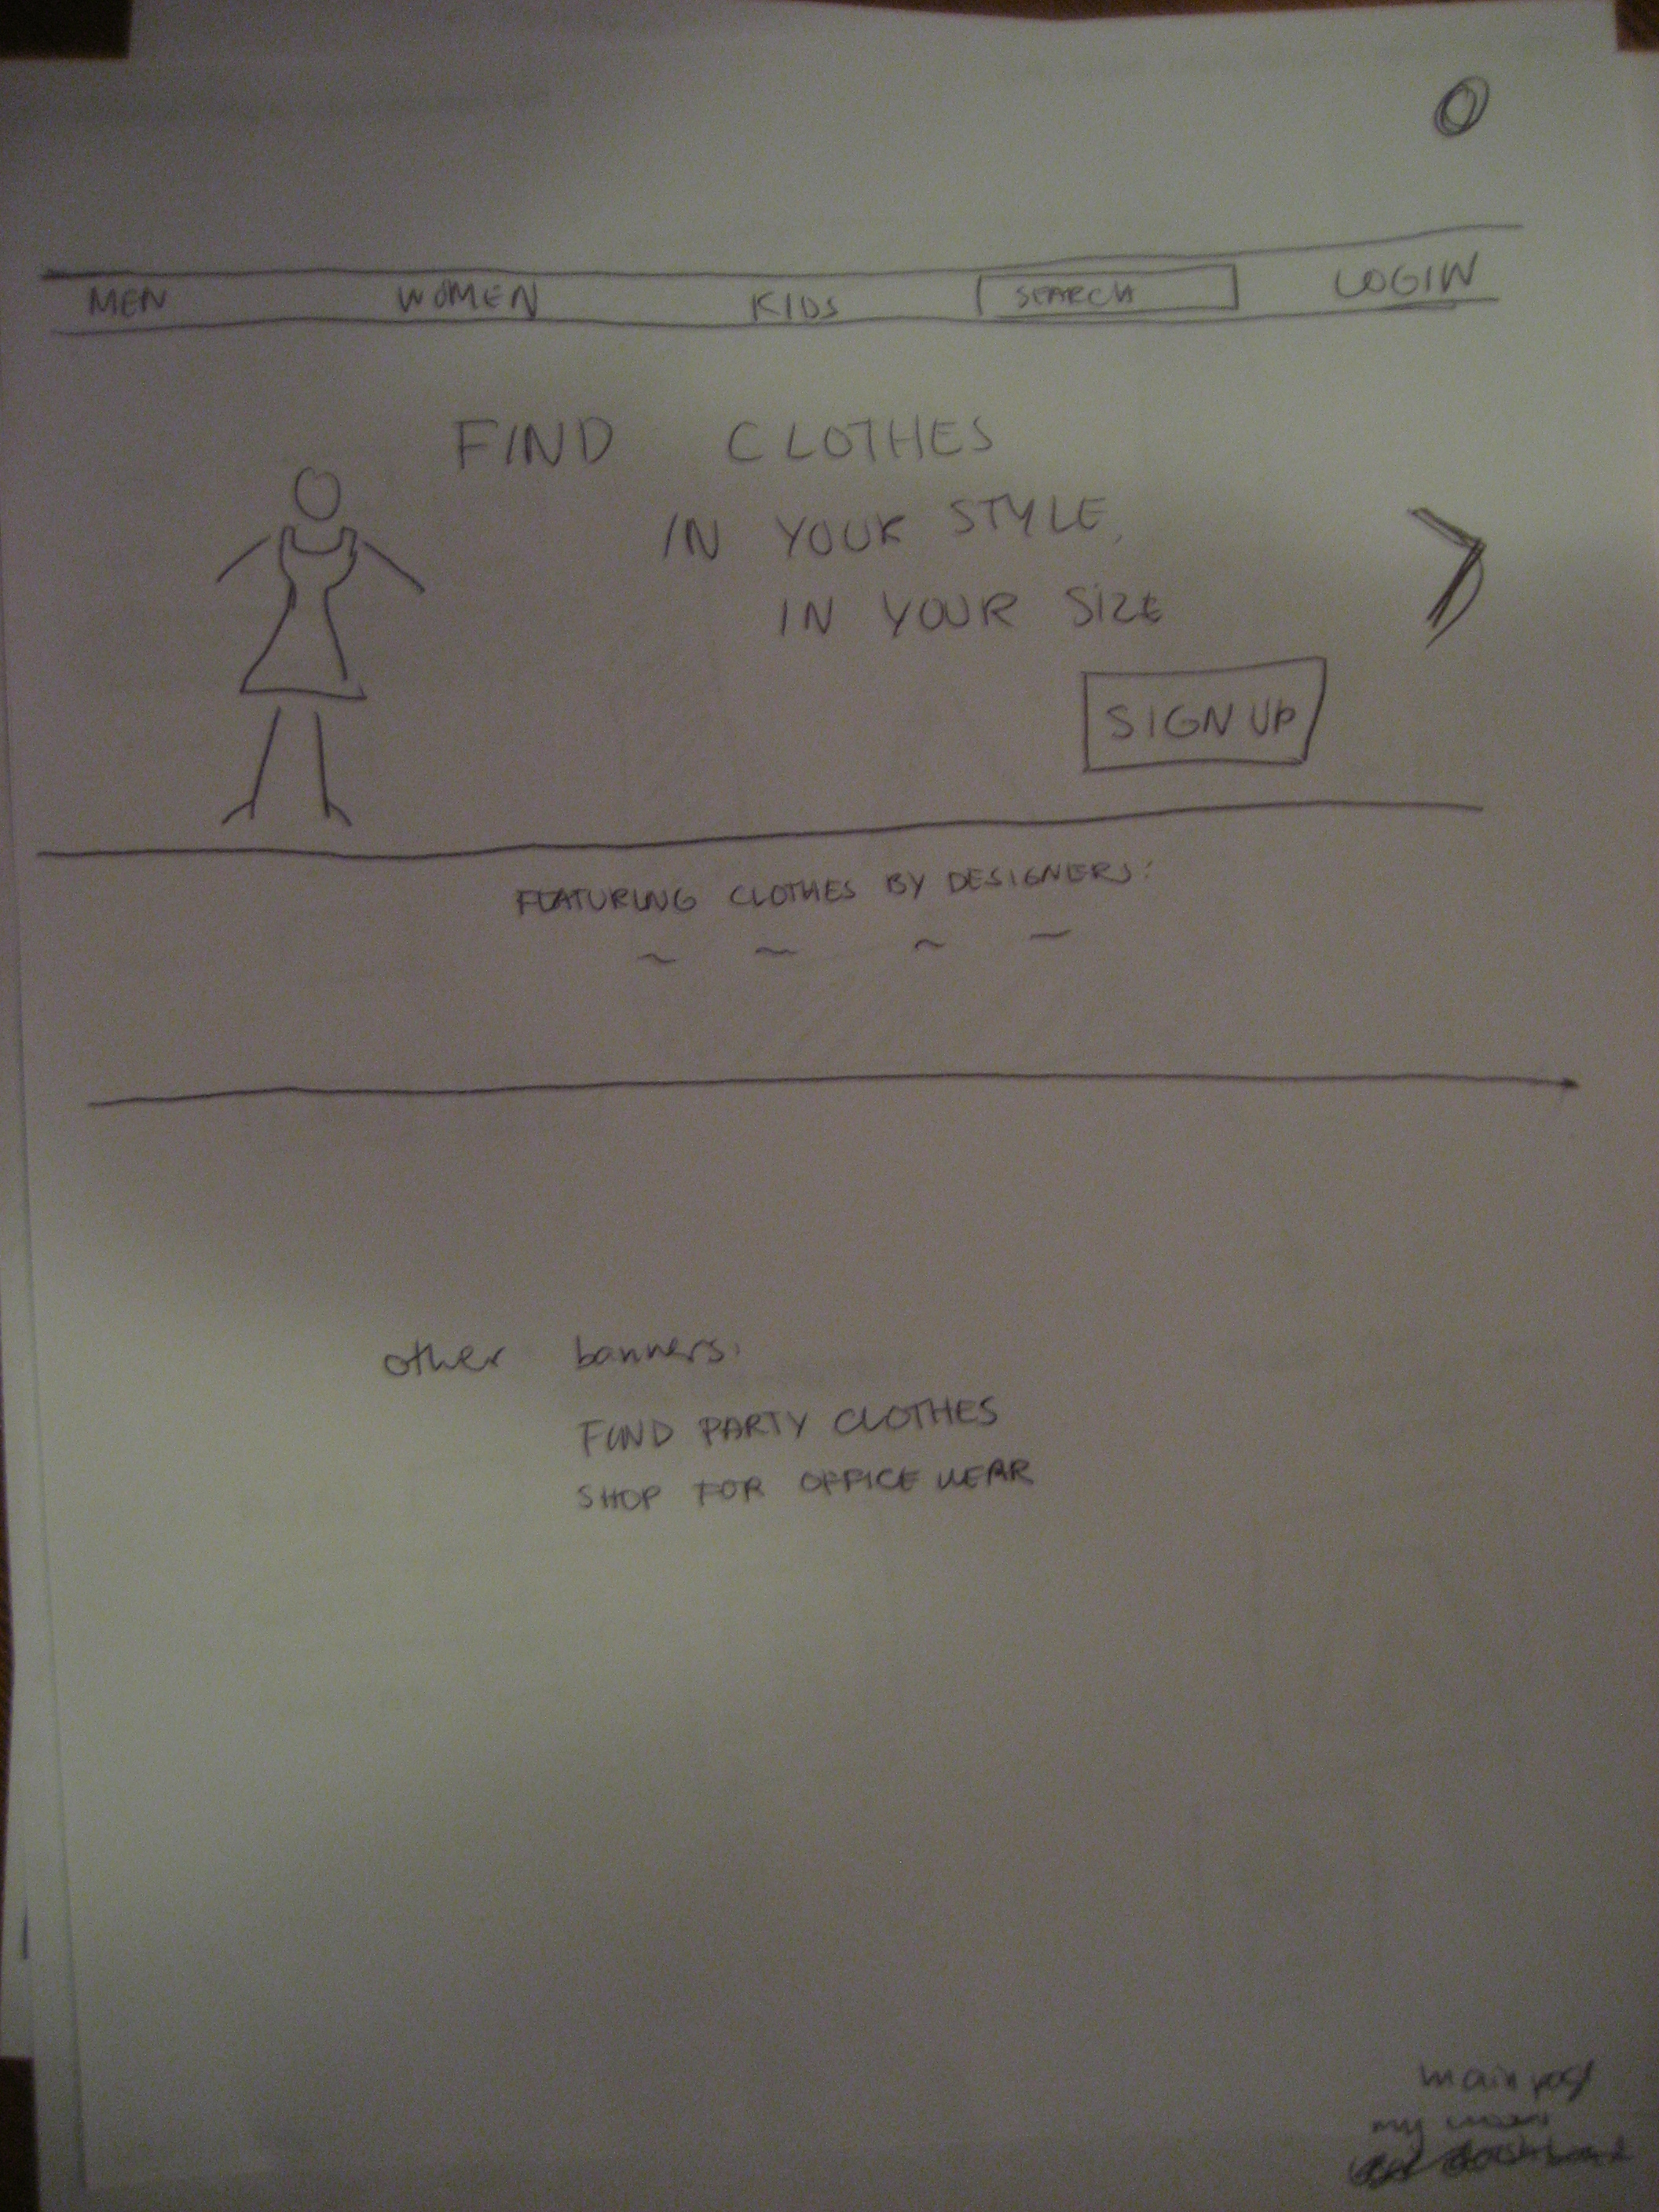 0
MEN WOMEN KIDS SEARCH LOGIN
FIND CLOTHES
IN YOUR STYLE,
IN YOUR SIZE
SIGN UP
FEATURING CLOTHES BY DESIGNERS:
~ ~ ~ ~
other banners:
FIND PARTY CLOTHES
SHOP FOR OFFICE WEAR
main
my